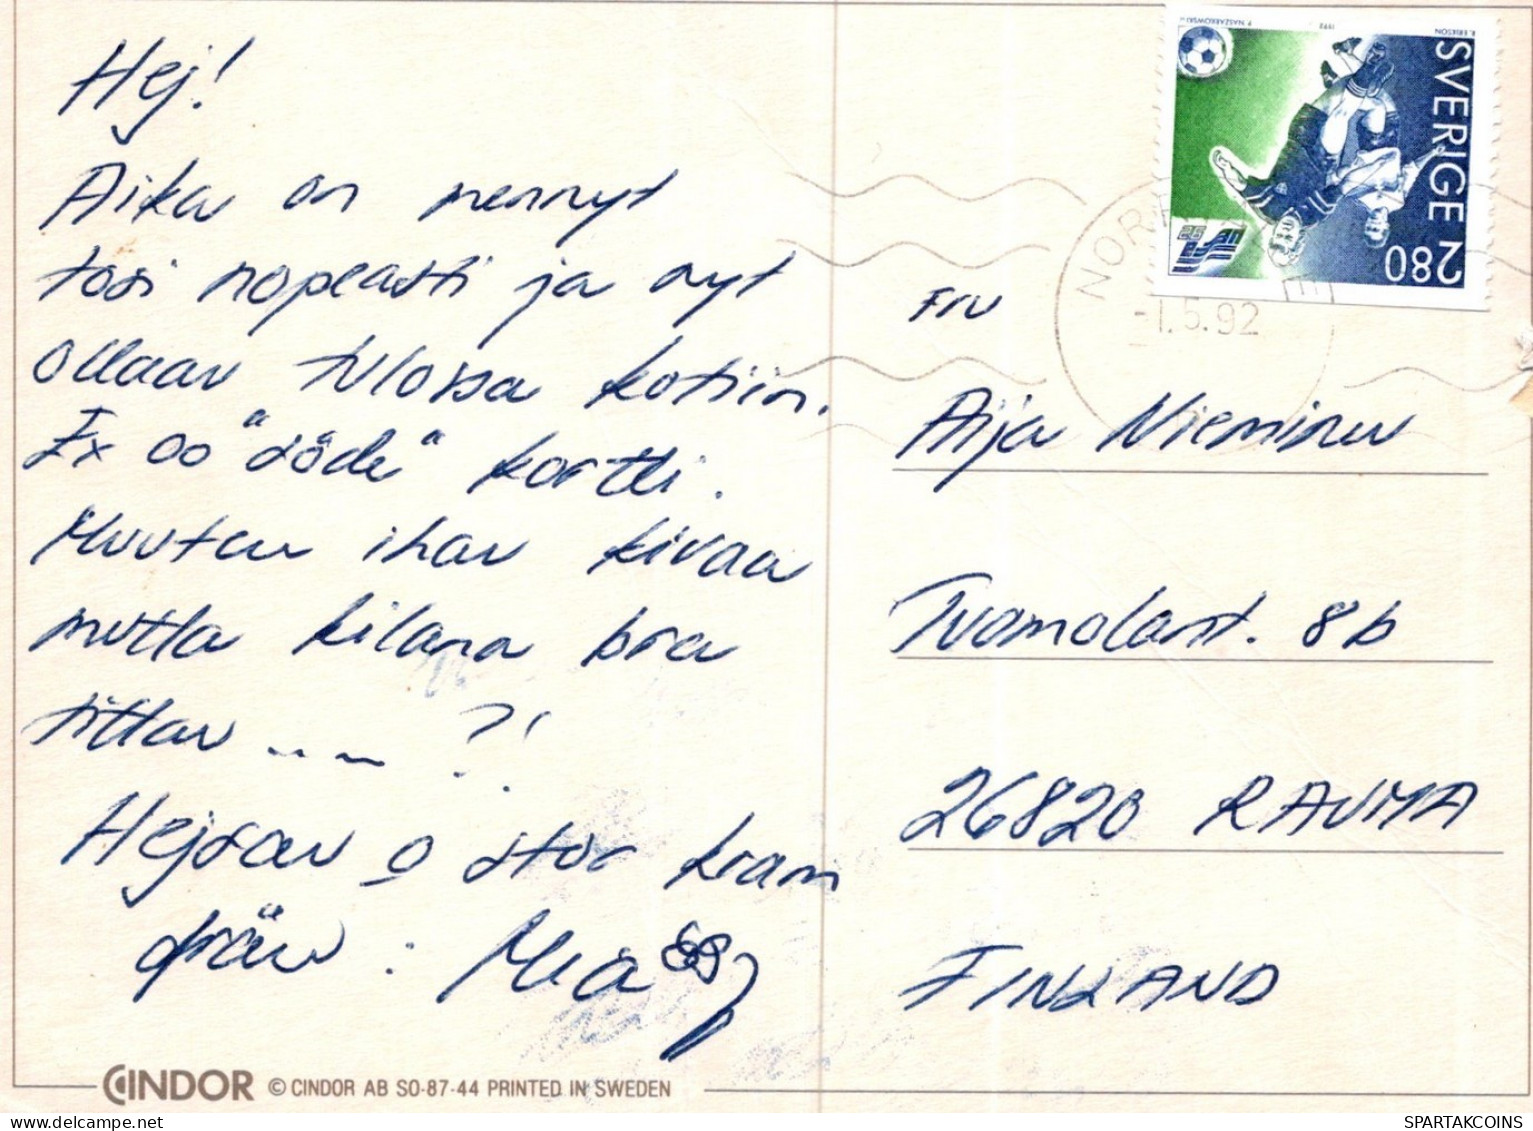 Hej!
Aika on mennyt
tosi nopeasti ja nyt
ollaan tulossa kotiin.
Ex oo "söde" kortti.
Muuten ihan kivaa
mutta kilana bra
tittar - - - ?!
Hejsan o stor kram
från: Mia
CINDOR © CINDOR AB SO-87-44 PRINTED IN SWEDEN
SVERIGE 280
R. ERIKSON 1992 P. NASZARKOWSKI
EM 92
NOR
-1.5.92
Fru
Aija Nieminen
Tuomolant. 8b
26820 RAUMA
FINLAND
SPARTAKCOINS